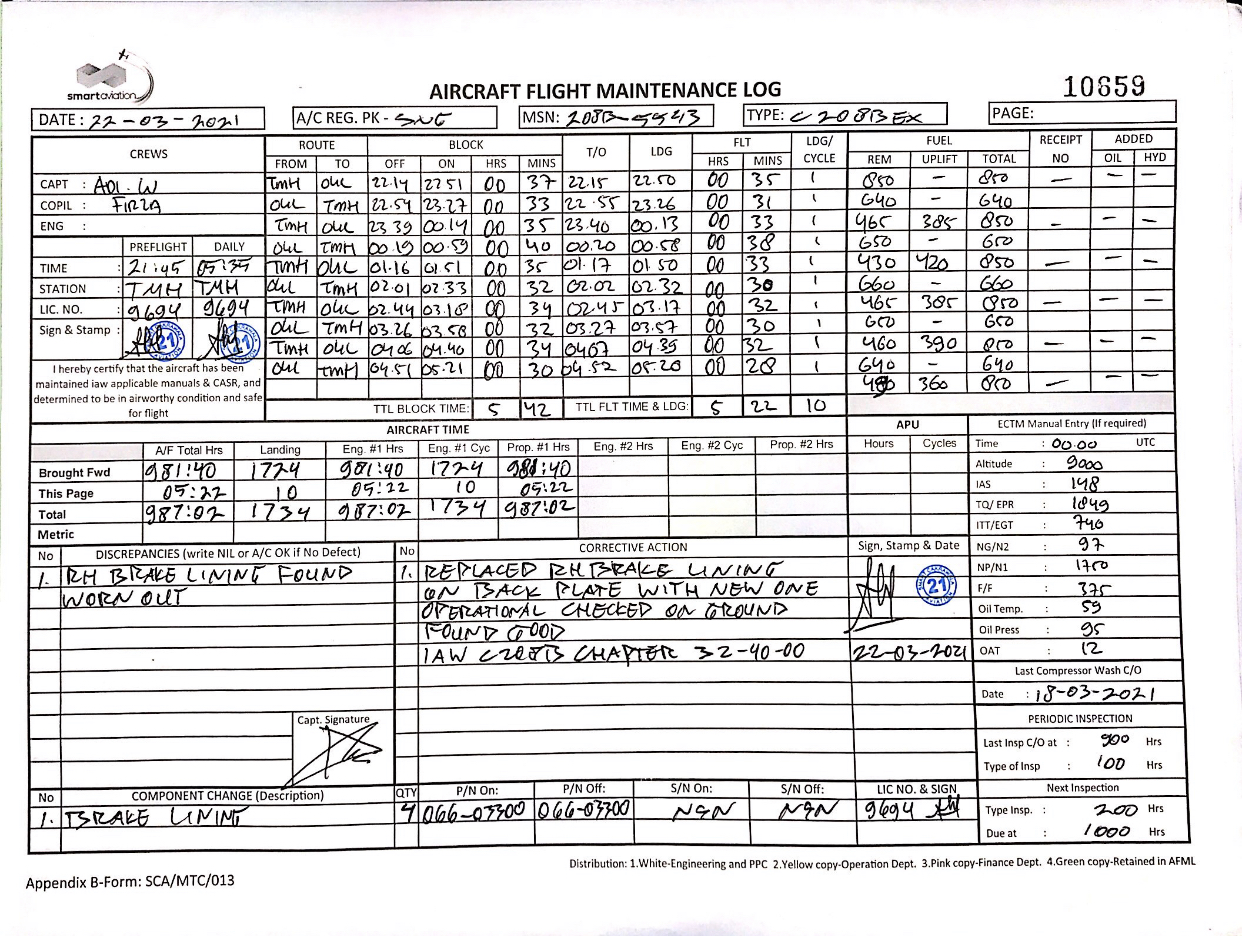 smartaviation
AIRCRAFT FLIGHT MAINTENANCE LOG
10659
DATE : 22-03-2021 A/C REG. PK - SNG MSN: 208B-5543 TYPE: C208B EX PAGE:
CREWS ROUTE BLOCK T/O LDG FLT LDG/ CYCLE FUEL RECEIPT NO ADDED
FROM TO OFF ON HRS MINS HRS MINS REM UPLIFT TOTAL OIL HYD
CAPT : ADI. W TMH OUL 22.14 22 51 00 37 22.15 22.50 00 35 1 850 – 850 – – –
COPIL : FIRZA OUL TMH 22.54 23.27 00 33 22 55 23.26 00 31 1 640 – 640
ENG : TMH OUL 23 39 00.14 00 35 23.40 00.13 00 33 1 465 385 850 – – –
PREFLIGHT DAILY OUL TMH 00.19 00.59 00 40 00.20 00.58 00 38 1 650 – 650
TIME : 21:45 05:35 TMH OUL 01.16 01.51 00 35 01.17 01.50 00 33 1 430 420 850 – – –
STATION : TMH TMH OUL TMH 02.01 02.33 00 32 02.02 02.32 00 30 1 660 – 660
LIC. NO. : 9694 9694 TMH OUL 02.44 03.18 00 34 02.45 03.17 00 32 1 465 385 850 – – –
Sign & Stamp : 21 21 OUL TMH 03.26 03.58 00 32 03.27 03.57 00 30 1 650 – 650
TMH OUL 04 06 04.40 00 34 0407 04.39 00 32 1 460 390 850 – – –
OUL TMH 04.51 05.21 00 30 04.52 05.20 00 28 1 640 – 640
490 360 850 – – –
I hereby certify that the aircraft has been
maintained iaw applicable manuals & CASR, and
determined to be in airworthy condition and safe
for flight
TTL BLOCK TIME: 5 42 TTL FLT TIME & LDG: 5 22 10
AIRCRAFT TIME APU ECTM Manual Entry (If required)
A/F Total Hrs Landing Eng. #1 Hrs Eng. #1 Cyc Prop. #1 Hrs Eng. #2 Hrs Eng. #2 Cyc Prop. #2 Hrs Hours Cycles
Brought Fwd 981:40 1724 981:40 1724 981:40
This Page 05:22 10 05:22 10 05:22
Total 987:02 1734 987:02 1734 987:02
Metric
Time : 00.00 UTC
Altitude : 9000
IAS : 148
TQ/ EPR : 1849
ITT/EGT : 740
NG/N2 : 97
NP/N1 : 1750
F/F : 375
Oil Temp. : 59
Oil Press : 95
OAT : 12
Last Compressor Wash C/O
Date : 18-03-2021
PERIODIC INSPECTION
Last Insp C/O at : 900 Hrs
Type of Insp : 100 Hrs
Next Inspection
Type Insp. : 200 Hrs
Due at : 1000 Hrs
No DISCREPANCIES (write NIL or A/C OK if No Defect) No CORRECTIVE ACTION Sign, Stamp & Date
1. RH BRAKE LINING FOUND 1. REPLACED RH BRAKE LINING
WORN OUT ON BACK PLATE WITH NEW ONE 21
OPERATIONAL CHECKED ON GROUND
FOUND GOOD
IAW C208B CHAPTER 32-40-00 22-03-2021
Capt. Signature
No COMPONENT CHANGE (Description) QTY P/N On: P/N Off: S/N On: S/N Off: LIC NO. & SIGN
1. BRAKE LINING 4 066-07300 066-07300 NSN NSN 9694
Distribution: 1.White-Engineering and PPC 2.Yellow copy-Operation Dept. 3.Pink copy-Finance Dept. 4.Green copy-Retained in AFML
Appendix B-Form: SCA/MTC/013